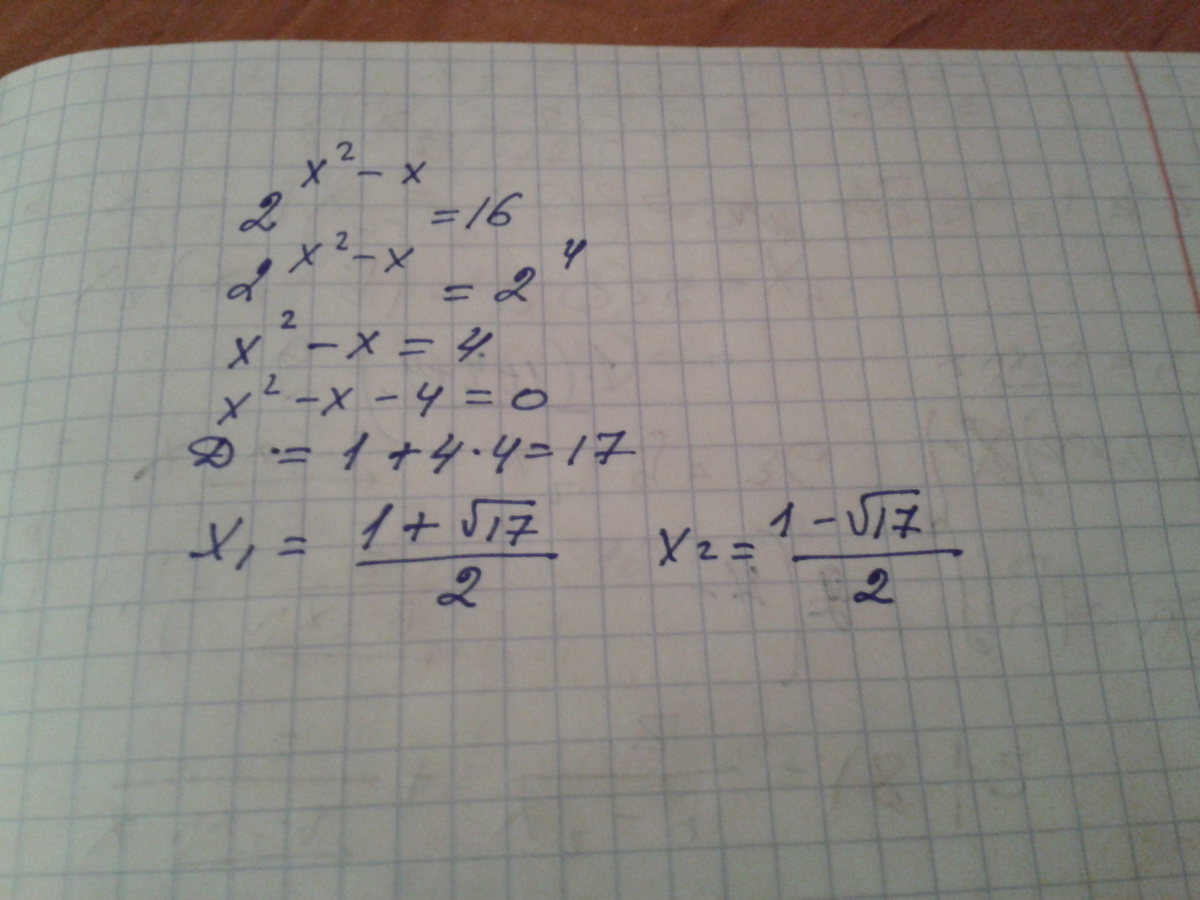 2^{x^2 - x} = 16
2^{x^2 - x} = 2^4
x^2 - x = 4
x^2 - x - 4 = 0
D = 1 + 4 · 4 = 17
x_1 = \frac{1 + \sqrt{17}}{2} x_2 = \frac{1 - \sqrt{17}}{2}